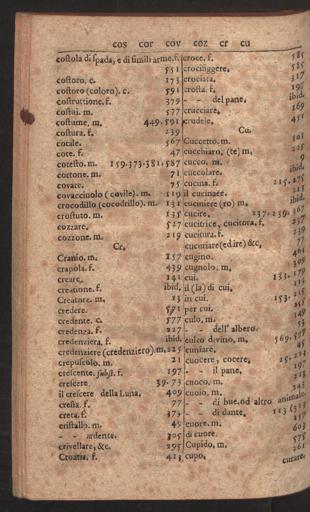 cos cor cov coz cr cu
costola di spada, e di simili arme. f.
551
costoro. c. 173
costoro (coloro). c. 591
costruttione. f. 379
costui. m. 577
costume. m. 449.591
costura. f. 239
cotale. 567
cote. f. 47
cotesto. m. 159.373.381.587
cottone. m. 71
covare. 75
covacciuolo (covile). m. 119
crocodillo (cocodrillo). m. 131
crostuto. m. 135
cozzare. 527
cozzone. m. 219
Cr.
Cranio. m. 257
crapola. f. 439
creare. 141
creatione. f. ibid.
Creatore. m. 13
credere. 571
credente. c. 577
credenza. f. 227
credenziera. f. ibid.
credenziere (credenziero) m. 225
crepuscolo. m. 21
crescente, subst. f. 197
crescere 39.73
il crescere della Luna. 409
cresta. f. 77
creta. f. 373
cristallo. m. 45
- - ardente. 305
crivellare, &c. 295
Croatia. f. 423
croce. f. 585
crocifiggere. 585
crociata. 317
crosta. f. 195
- - del pane. ibid.
crucciare. 169
crudele. 451
Cu.
Cuccetto. m.
cucchiaro, (te) m.
cucco. m. 9
cuccolare. ibid.
cucina. f. 215.275
il cucinare.
cuciniere (ro) m. ibid.
cucire. 237.239.267
cucitrice, cucitora. f. 237
cucitura. f. 239
cucuriare (ed ire) &c. 77
cugino. 461
cugnolo. m. 309
cui. 133.179
il (la) di cui,
in cui. 153.
per cui.
culo. m. 149
- - dell' albero. 53
culto divino. m. 569.577
cuniare.
cuocere, cocere, 25.
- - il pane,
cuoco. m.
cuoio. m. 243
- - di bue od altro animale.
- - di dante, 113
cuore. m. 457
di cuore. 603
Cupido, m. 575
cupo. 261
curare.